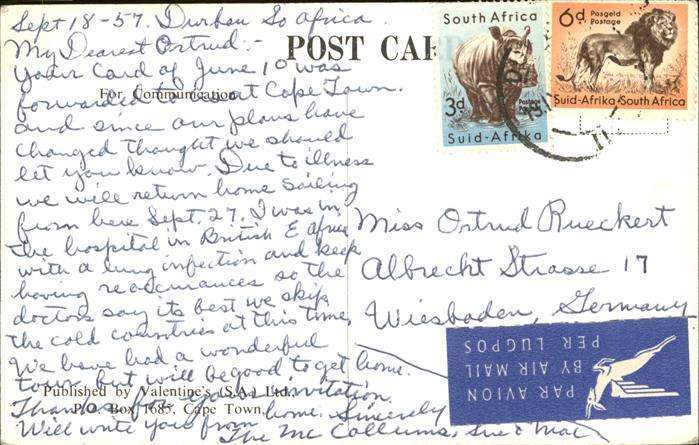 Sept 18-57. Durban So Africa.
My Dearest Ortrud:-
Your Card of June 10 was
forwarded to us at Cape Town.
and since our plans have
changed thought we should
let you know. Due to illness
we will return home sailing
from here Sept. 27. I was in
the hospital in British E Africa
with a lung infection and keep
having reoccurances so the
doctors say its best we skip
the cold countries at this time.
We have had a wonderful
tour but will be good to get home.
Thanks for your invitation.
Will write you from home. Sincerely
The Mc Collums, Sue & Mac
POST CAR
For Communication
Published by Valentine's (S.A.) Ltd.,
P.O. Box 1685, Cape Town.
South Africa
3d
Posgeld
Postage
Suid-Afrika
6d
Posgeld
Postage
Suid-Afrika South Africa
Miss Ortrud Rueckert
Albrecht Strasse 17
Wiesbaden, Germany
PAR AVION
BY AIR MAIL
PER LUGPOS